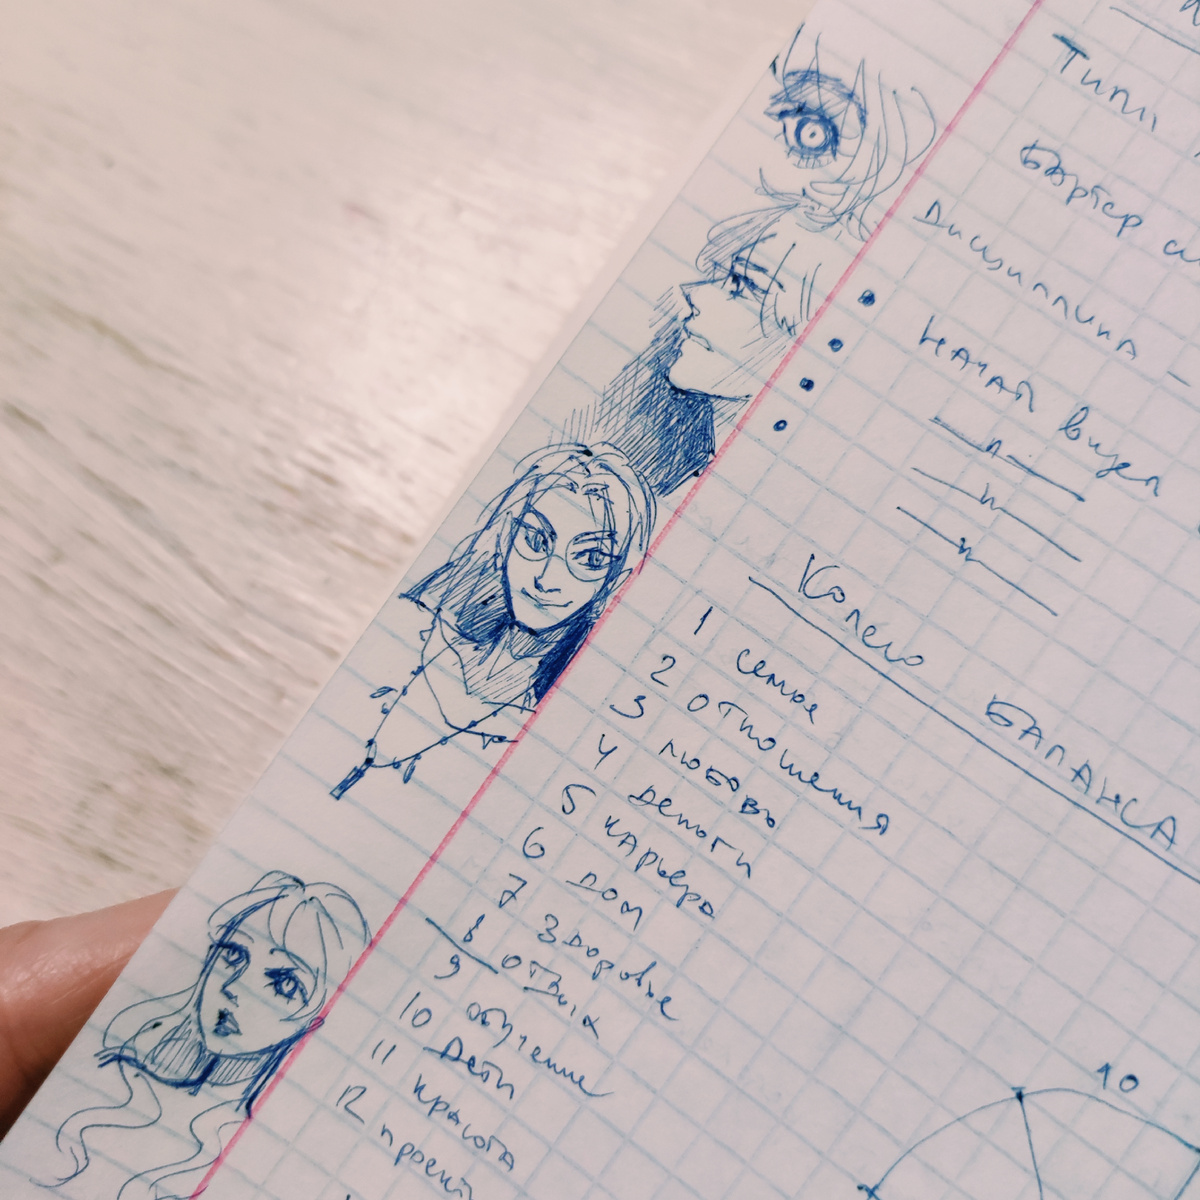 Типы
Бартер
Дисциплина -
Начал видел
— п —
— и —
— и —
Колесо БАЛАНСА
1 семья
2 отношения
3 любовь
4 деньги
5 карьера
6 дом
7 здоровье
8 отдых
9 обучение
10 Дети
11 красота
12 проект
10